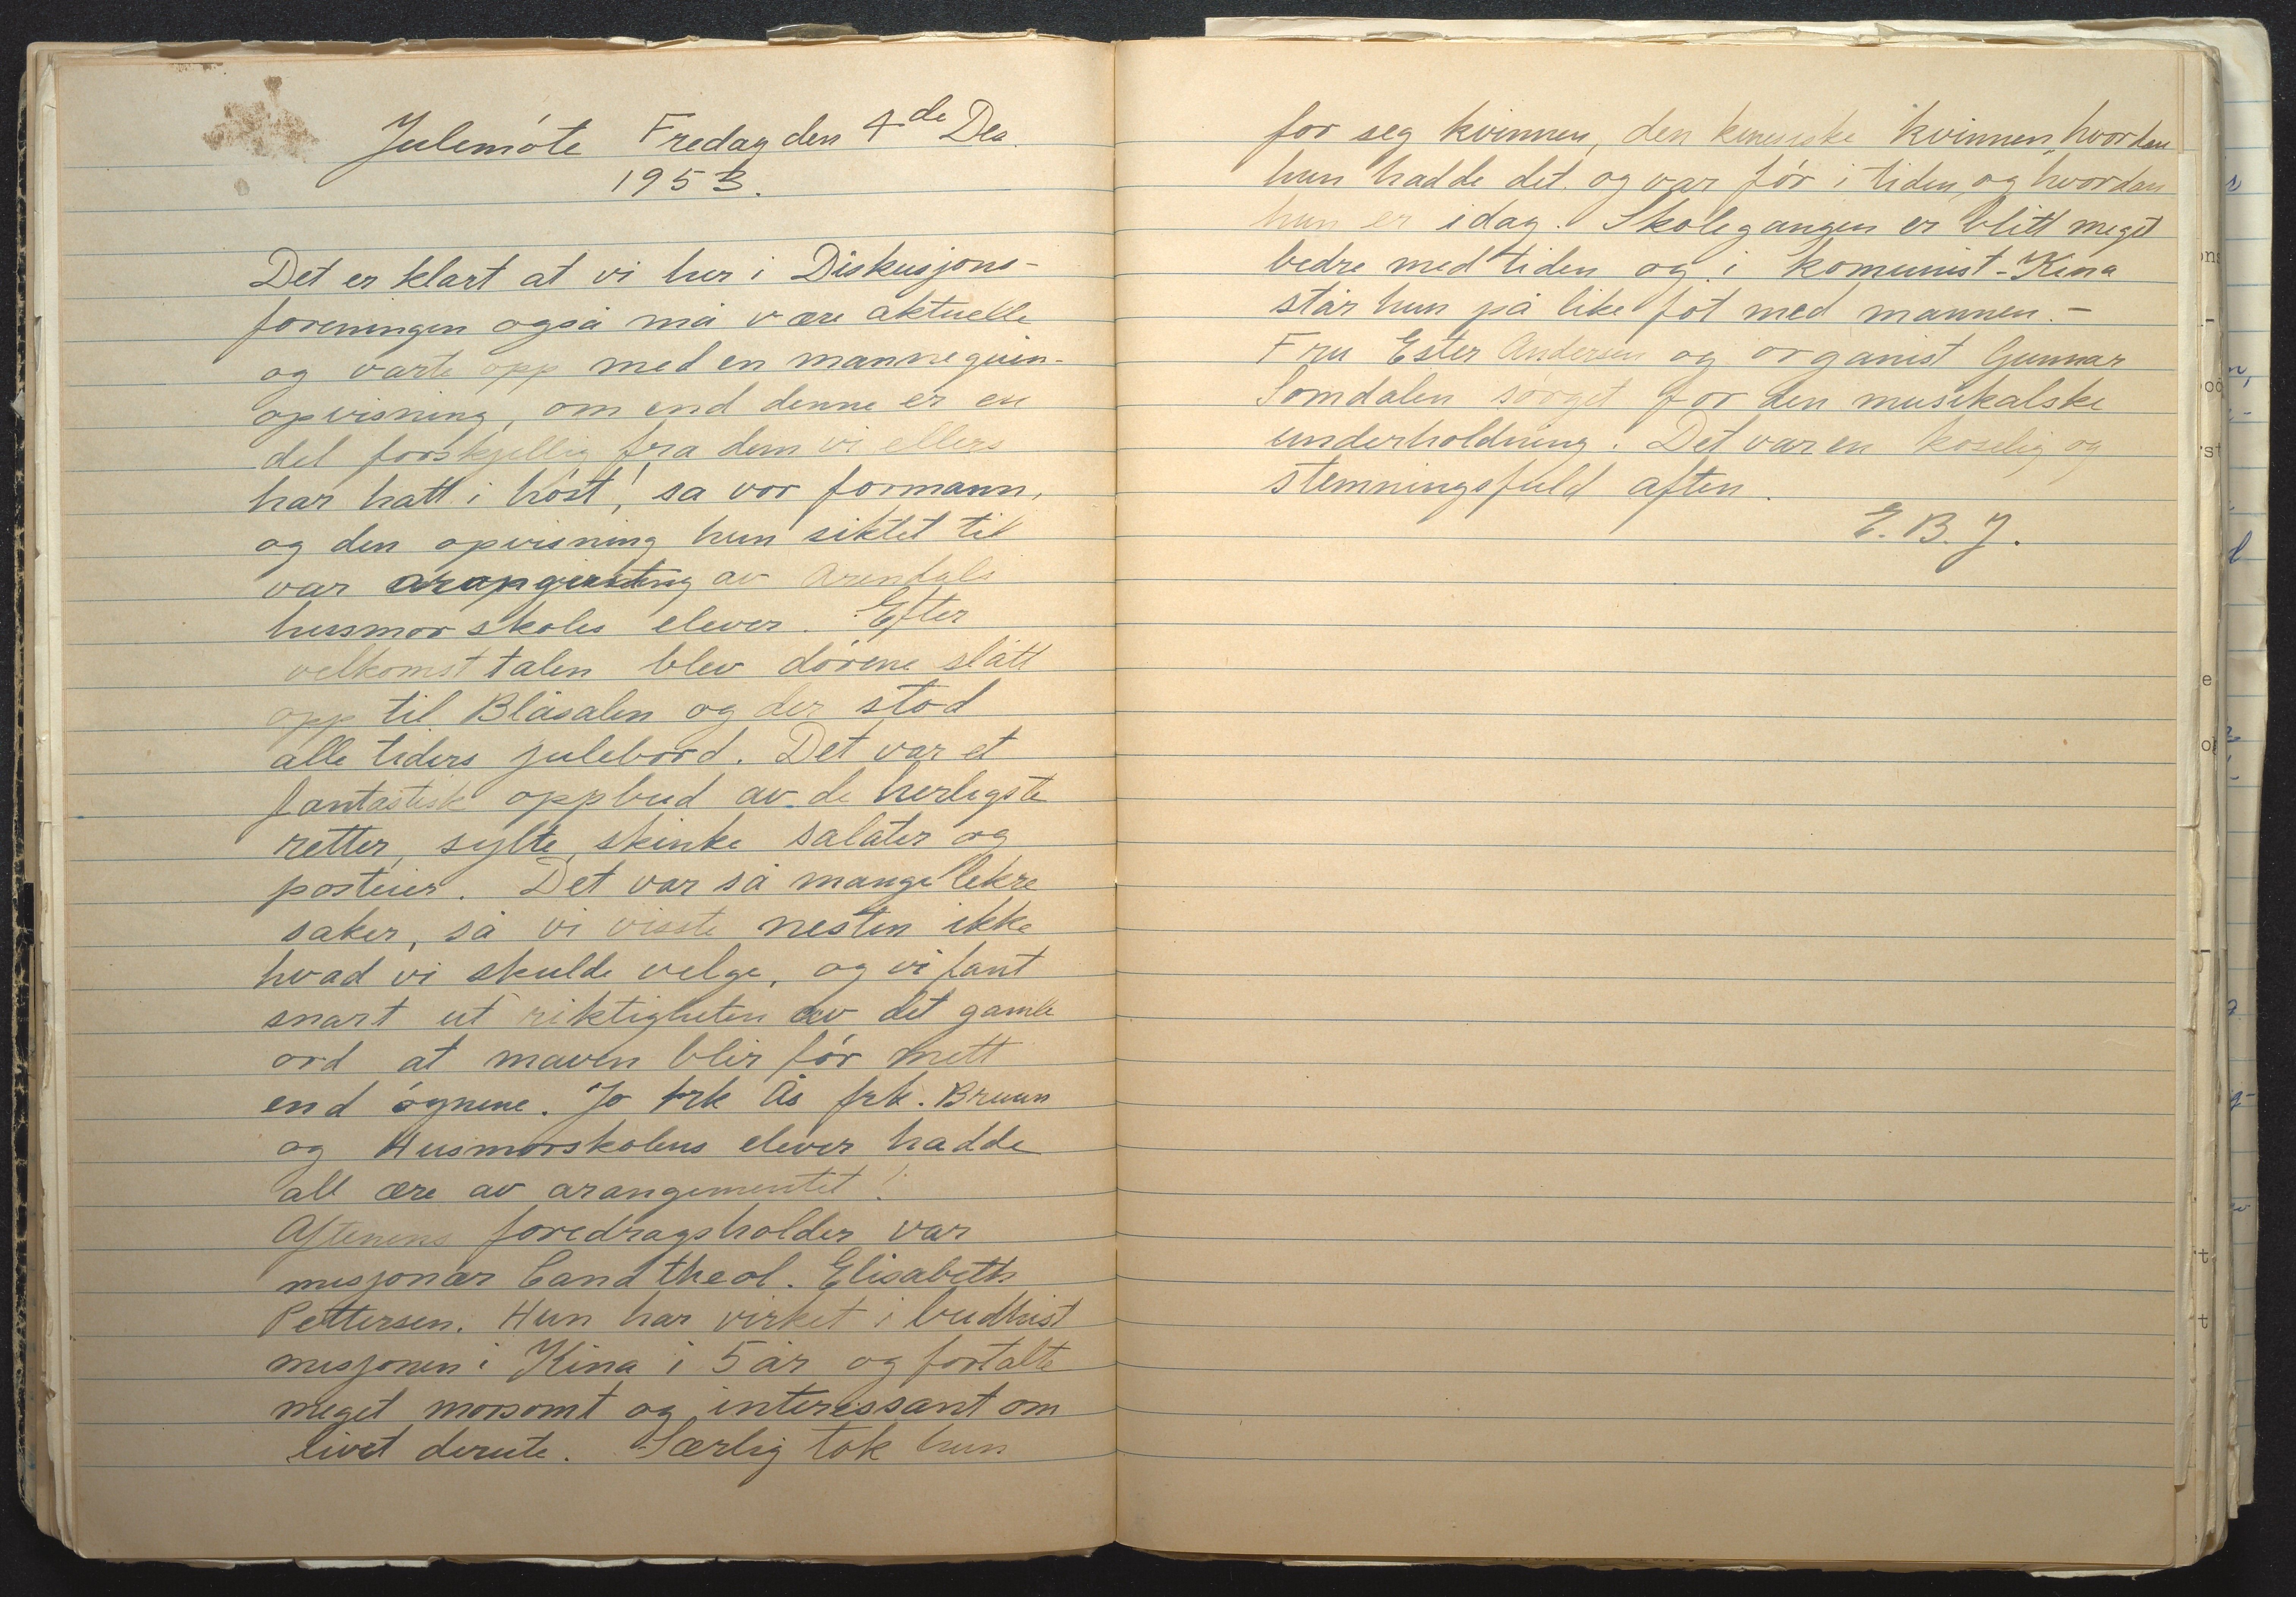 Julemöte Fredag den 4de Des.
1953.
Det er klart at vi her i Diskusjons-
foreningen også må være aktuelle
og varte opp med en mannequin-
opvisning, om end denne er en
del forskjellig fra dem vi ellers
har hatt i höst!, sa vor formann,
og den opvisning hun siktet til
var av Arendals
husmorskoles elever. Efter
velkomsttalen blev dörene slått
opp til Blåsalen og der stod
alle tiders julebord. Det var et
fantastisk oppbud av de herligste
retter, sylte, skinke salater og
posteier. Det var så mange lekre
saker, så vi visste nesten ikke
hvad vi skulde velge, og vi fant
snart ut riktigheten av det gamle
ord at maven blir för mett
end öynene. Jo frk Ås frk. Bruun
og Husmorskolens elever hadde
all ære av arangementet!
Aftenens foredragsholder var
misjonær Cand theol. Elisabeth
Pettersen. Hun har virket i budhist
misjonen i Kina i 5 år og fortalte
meget morsomt og interessant om
livet derute. Særlig tok hun
for seg kvinnen, den kinesiske kvinnen, hvordan
hun hadde det og var för i tiden, og hvordan
hun er idag. Skolegangen er blitt meget
bedre med tiden og i komunist-Kina
står hun på like fot med mannen. -
Fru Ester Andersen og organist Gunnar
Somdalen sörget for den musikalske
underholdning. Det var en koselig og
stemningsfuld aften.
E. B. J.